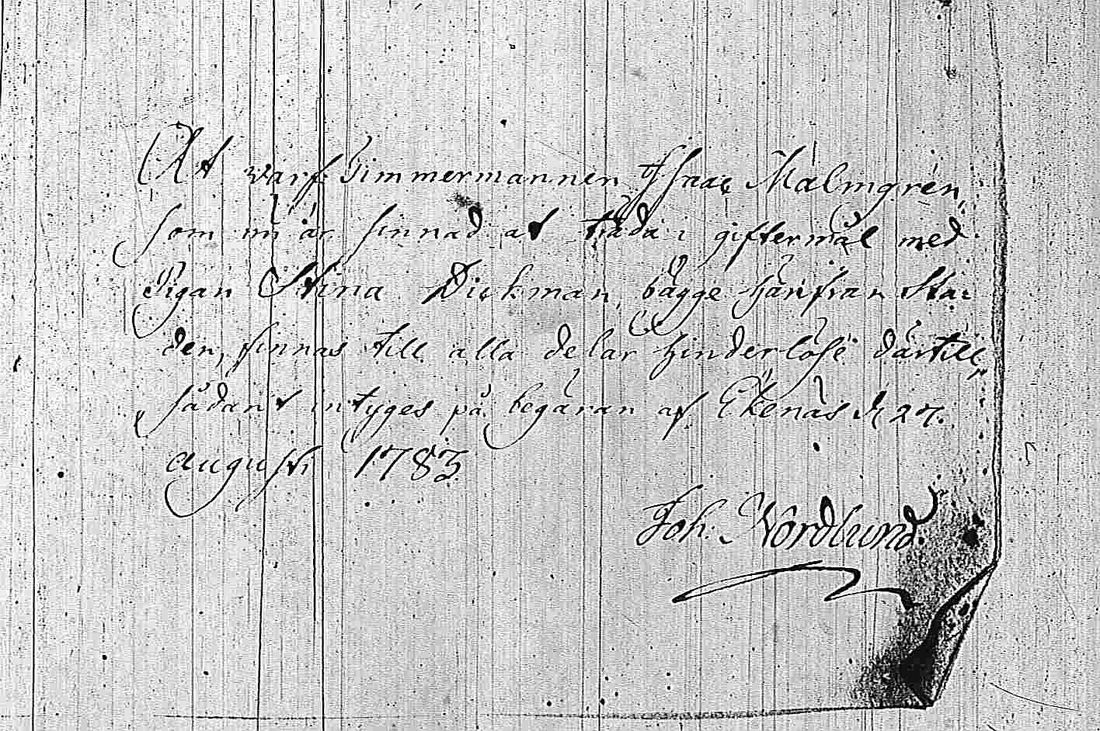 At warfs Timmermannen Isaac Malmgren,
som nu är sinnad at träda i giftermål med
Pigan Stina Dickman, bägge härifrån Sta=
den, finnas till alla delar hinderlöse därtill,
sådant intyges på begäran af Ekenäs d 27.
augusti 1783.
Joh. Nordlund.